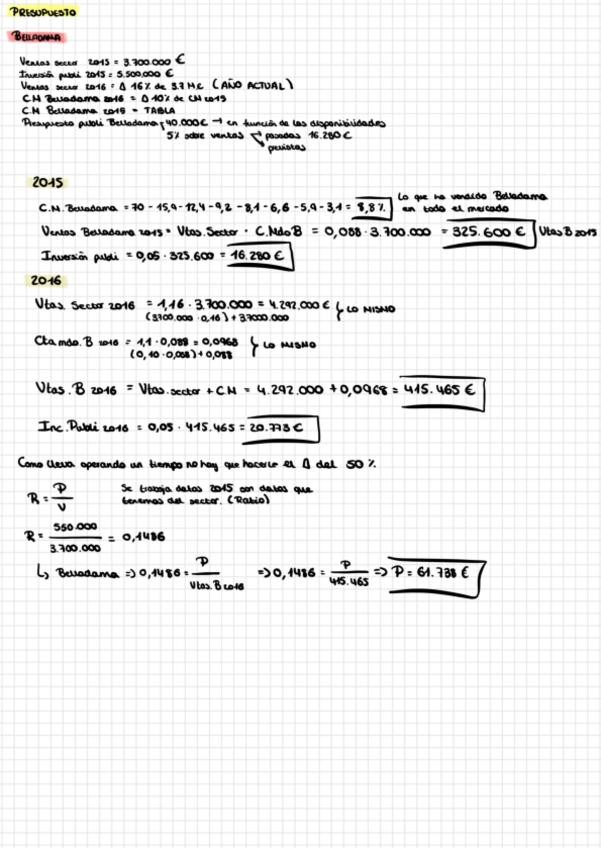 PRESUPUESTO
BELLADAMA
Ventas sector 2015 = 3.700.000 €
Inversión publi 2015 = 5.500.000 €
Ventas sector 2016 = Δ 16% de 3.7 M€ (AÑO ACTUAL)
C.M Belladama 2016 = Δ 10% de CM 2015
C.M Belladama 2015 = TABLA
Presupuesto publi Belladama 40.000€ → en función de las disponibilidades
5% sobre ventas pasadas 16.280€
previstas
2015
C.M. Belladama = 70 - 15,9 - 12,4 - 9,2 - 8,1 - 6,6 - 5,9 - 3,1 = 8,8% Lo que ha vendido Belladama
en todo el mercado
Ventas Belladama 2015 = Vtas. Sector · C.Mdo B = 0,088 · 3.700.000 = 325.600 € Vtas B 2015
Inversión publi = 0,05 · 325.600 = 16.280 €
2016
Vtas. Sector 2016 = 1,16 · 3.700.000 = 4.292.000 € } LO MISMO
(3700.000 · 0,16) + 37000.000
Cta mdo. B 2016 = 1,1 · 0,088 = 0,0968 } LO MISMO
(0,10 · 0,088) + 0,088
Vtas. B 2016 = Vtas. sector + CM = 4.292.000 + 0,0968 = 415.465 €
Inc. Publi 2016 = 0,05 · 415.465 = 20.773 €
Como lleva operando un tiempo no hay que hacerle el Δ del 50%.
R = P / V Se trabaja datos 2015 con datos que
tenemos del sector. (Ratio)
R = 550.000 / 3.700.000 = 0,1486
↳ Belladama => 0,1486 = P / Vtas. B 2016 => 0,1486 = P / 415.465 => P = 61.738 €